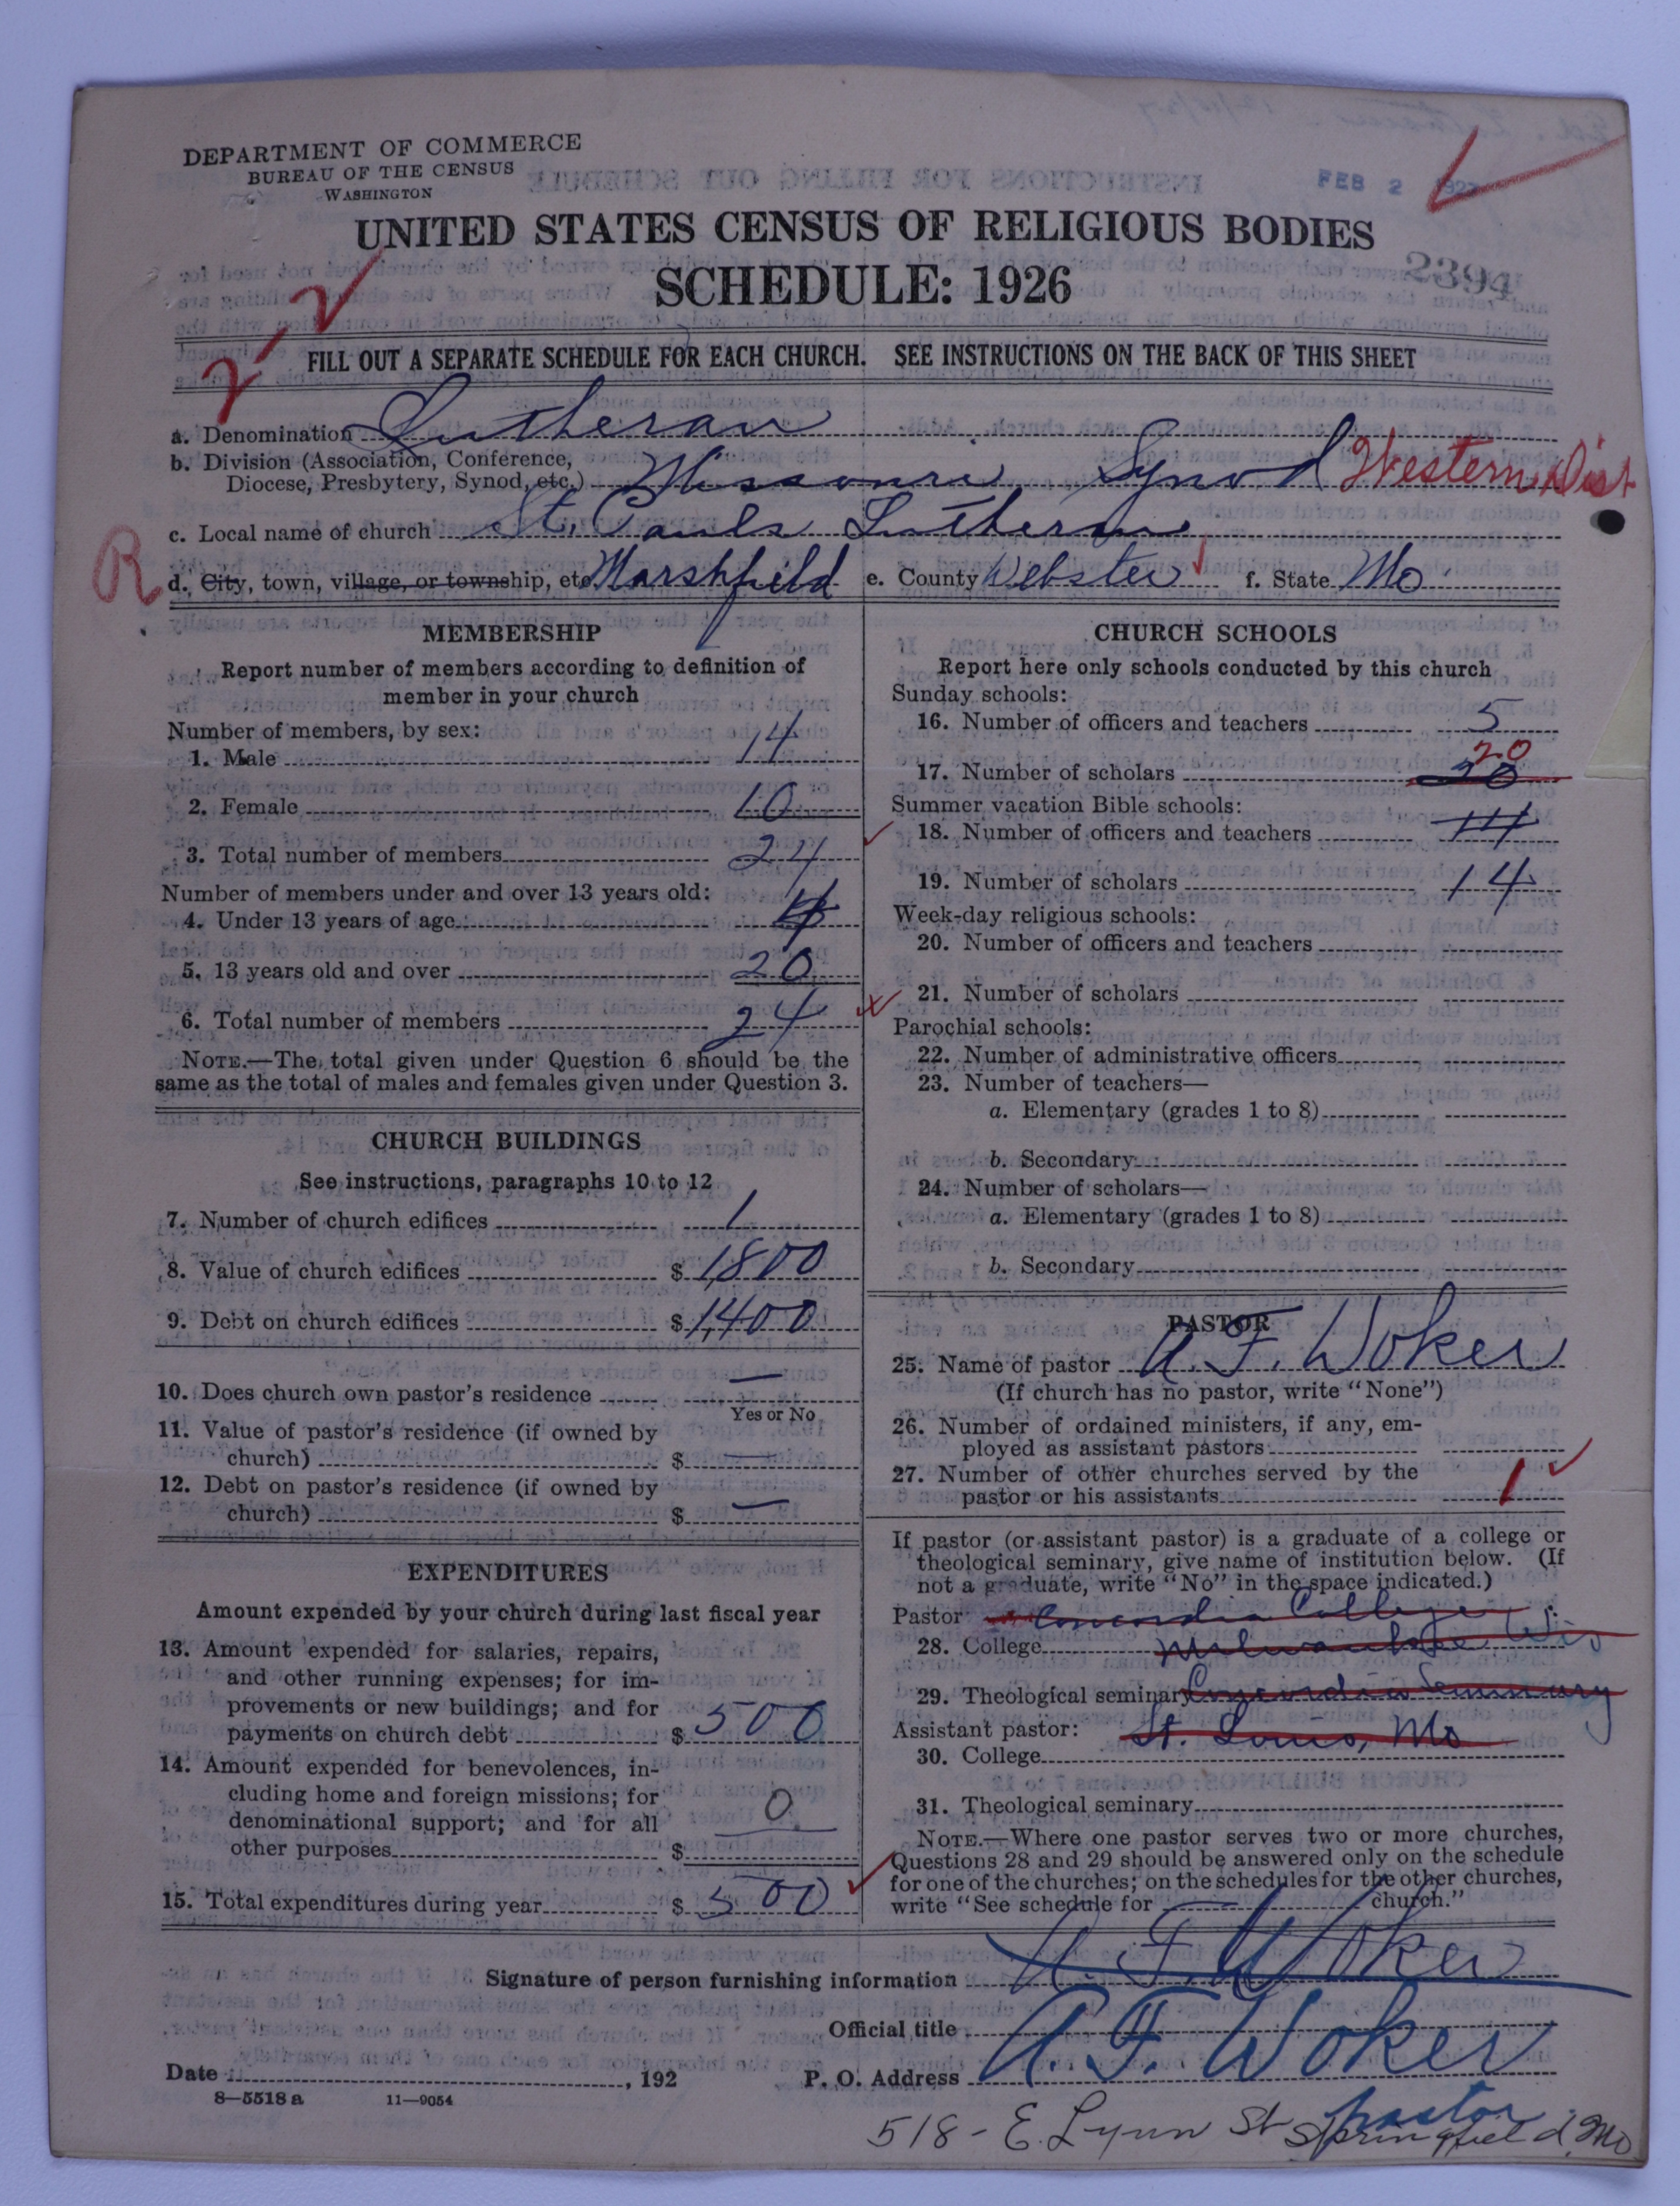 DEPARTMENT OF COMMERCE
BUREAU OF THE CENSUS
WASHINGTON
FEB 2 1927
UNITED STATES CENSUS OF RELIGIOUS BODIES
SCHEDULE: 1926
2394
FILL OUT A SEPARATE SCHEDULE FOR EACH CHURCH. SEE INSTRUCTIONS ON THE BACK OF THIS SHEET
a. Denomination Lutheran
b. Division (Association, Conference,
Diocese, Presbytery, Synod, etc.) Missouri Synod Western Dist
c. Local name of church St. Pauls Lutheran
R
d. City, town, village, or township, etc. Marshfield e. County Webster f. State Mo
MEMBERSHIP
Report number of members according to definition of
member in your church
Number of members, by sex:
1. Male 14
2. Female 10
3. Total number of members 24
Number of members under and over 13 years old:
4. Under 13 years of age 4
5. 13 years old and over 20
6. Total number of members 24
NOTE.—The total given under Question 6 should be the
same as the total of males and females given under Question 3.
CHURCH BUILDINGS
See instructions, paragraphs 10 to 12
7. Number of church edifices 1
8. Value of church edifices $ 1,800
9. Debt on church edifices $ 1,400
10. Does church own pastor's residence —
Yes or No
11. Value of pastor's residence (if owned by
church) $ —
12. Debt on pastor's residence (if owned by
church) $ —
EXPENDITURES
Amount expended by your church during last fiscal year
13. Amount expended for salaries, repairs,
and other running expenses; for im-
provements or new buildings; and for
payments on church debt $ 500
14. Amount expended for benevolences, in-
cluding home and foreign missions; for
denominational support; and for all
other purposes $ 0
15. Total expenditures during year $ 500
CHURCH SCHOOLS
Report here only schools conducted by this church
Sunday schools:
16. Number of officers and teachers 5
20
17. Number of scholars
Summer vacation Bible schools:
18. Number of officers and teachers 14
19. Number of scholars 14
Week-day religious schools:
20. Number of officers and teachers
21. Number of scholars
Parochial schools:
22. Number of administrative officers
23. Number of teachers—
a. Elementary (grades 1 to 8)
b. Secondary
24. Number of scholars—
a. Elementary (grades 1 to 8)
b. Secondary
PASTOR
25. Name of pastor A. F. Woker
(If church has no pastor, write "None")
26. Number of ordained ministers, if any, em-
ployed as assistant pastors
27. Number of other churches served by the
pastor or his assistants 1
If pastor (or assistant pastor) is a graduate of a college or
theological seminary, give name of institution below. (If
not a graduate, write "No" in the space indicated.)
Pastor Concordia College
28. College Milwaukee Wis
29. Theological seminary Concordia Seminary
Assistant pastor: St. Louis, Mo
30. College
31. Theological seminary
NOTE.—Where one pastor serves two or more churches,
Questions 28 and 29 should be answered only on the schedule
for one of the churches; on the schedules for the other churches,
write "See schedule for church."
Signature of person furnishing information A. F. Woker
Official title
Date , 192 P. O. Address A. F. Woker
8—5518 a 11—9054
pastor
518 - E. Lynn St Springfield, Mo